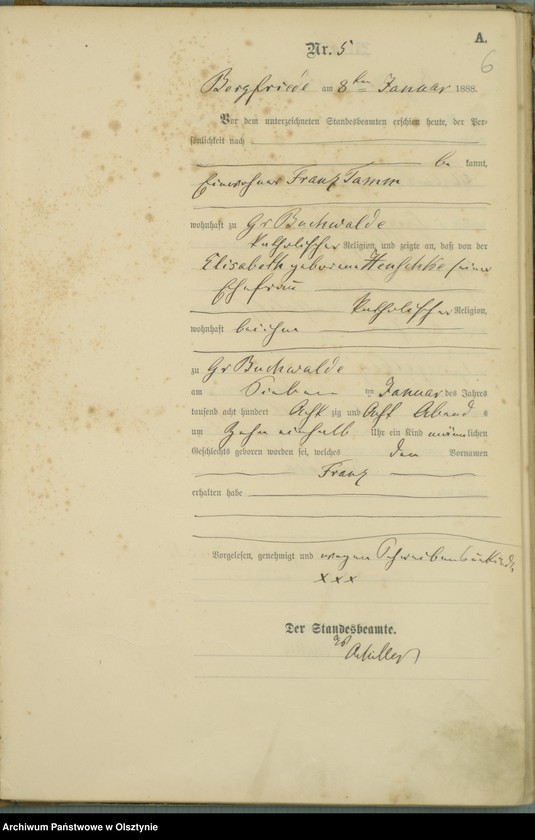 A.
Nr. 5
6
Bergfriede am 8ten Januar 1888.
Vor dem unterzeichneten Standesbeamten erschien heute, der Per-
sönlichkeit nach
be kannt,
Einwohner Franz Tamm
wohnhaft zu Gr Buchwalde
katholischer Religion, und zeigte an, daß von der
Elisabeth geborene Henschke seiner
Ehefrau
katholischer Religion,
wohnhaft bei ihm
zu Gr Buchwalde
am Sieben ten Januar des Jahres
tausend acht hundert Acht zig und Acht Abend s
um Zehn einhalb Uhr ein Kind männ lichen
Geschlechts geboren worden sei, welches den Vornamen
Franz
erhalten habe
Vorgelesen, genehmigt und wegen Schreibensunkunde
x x x
Der Standesbeamte.